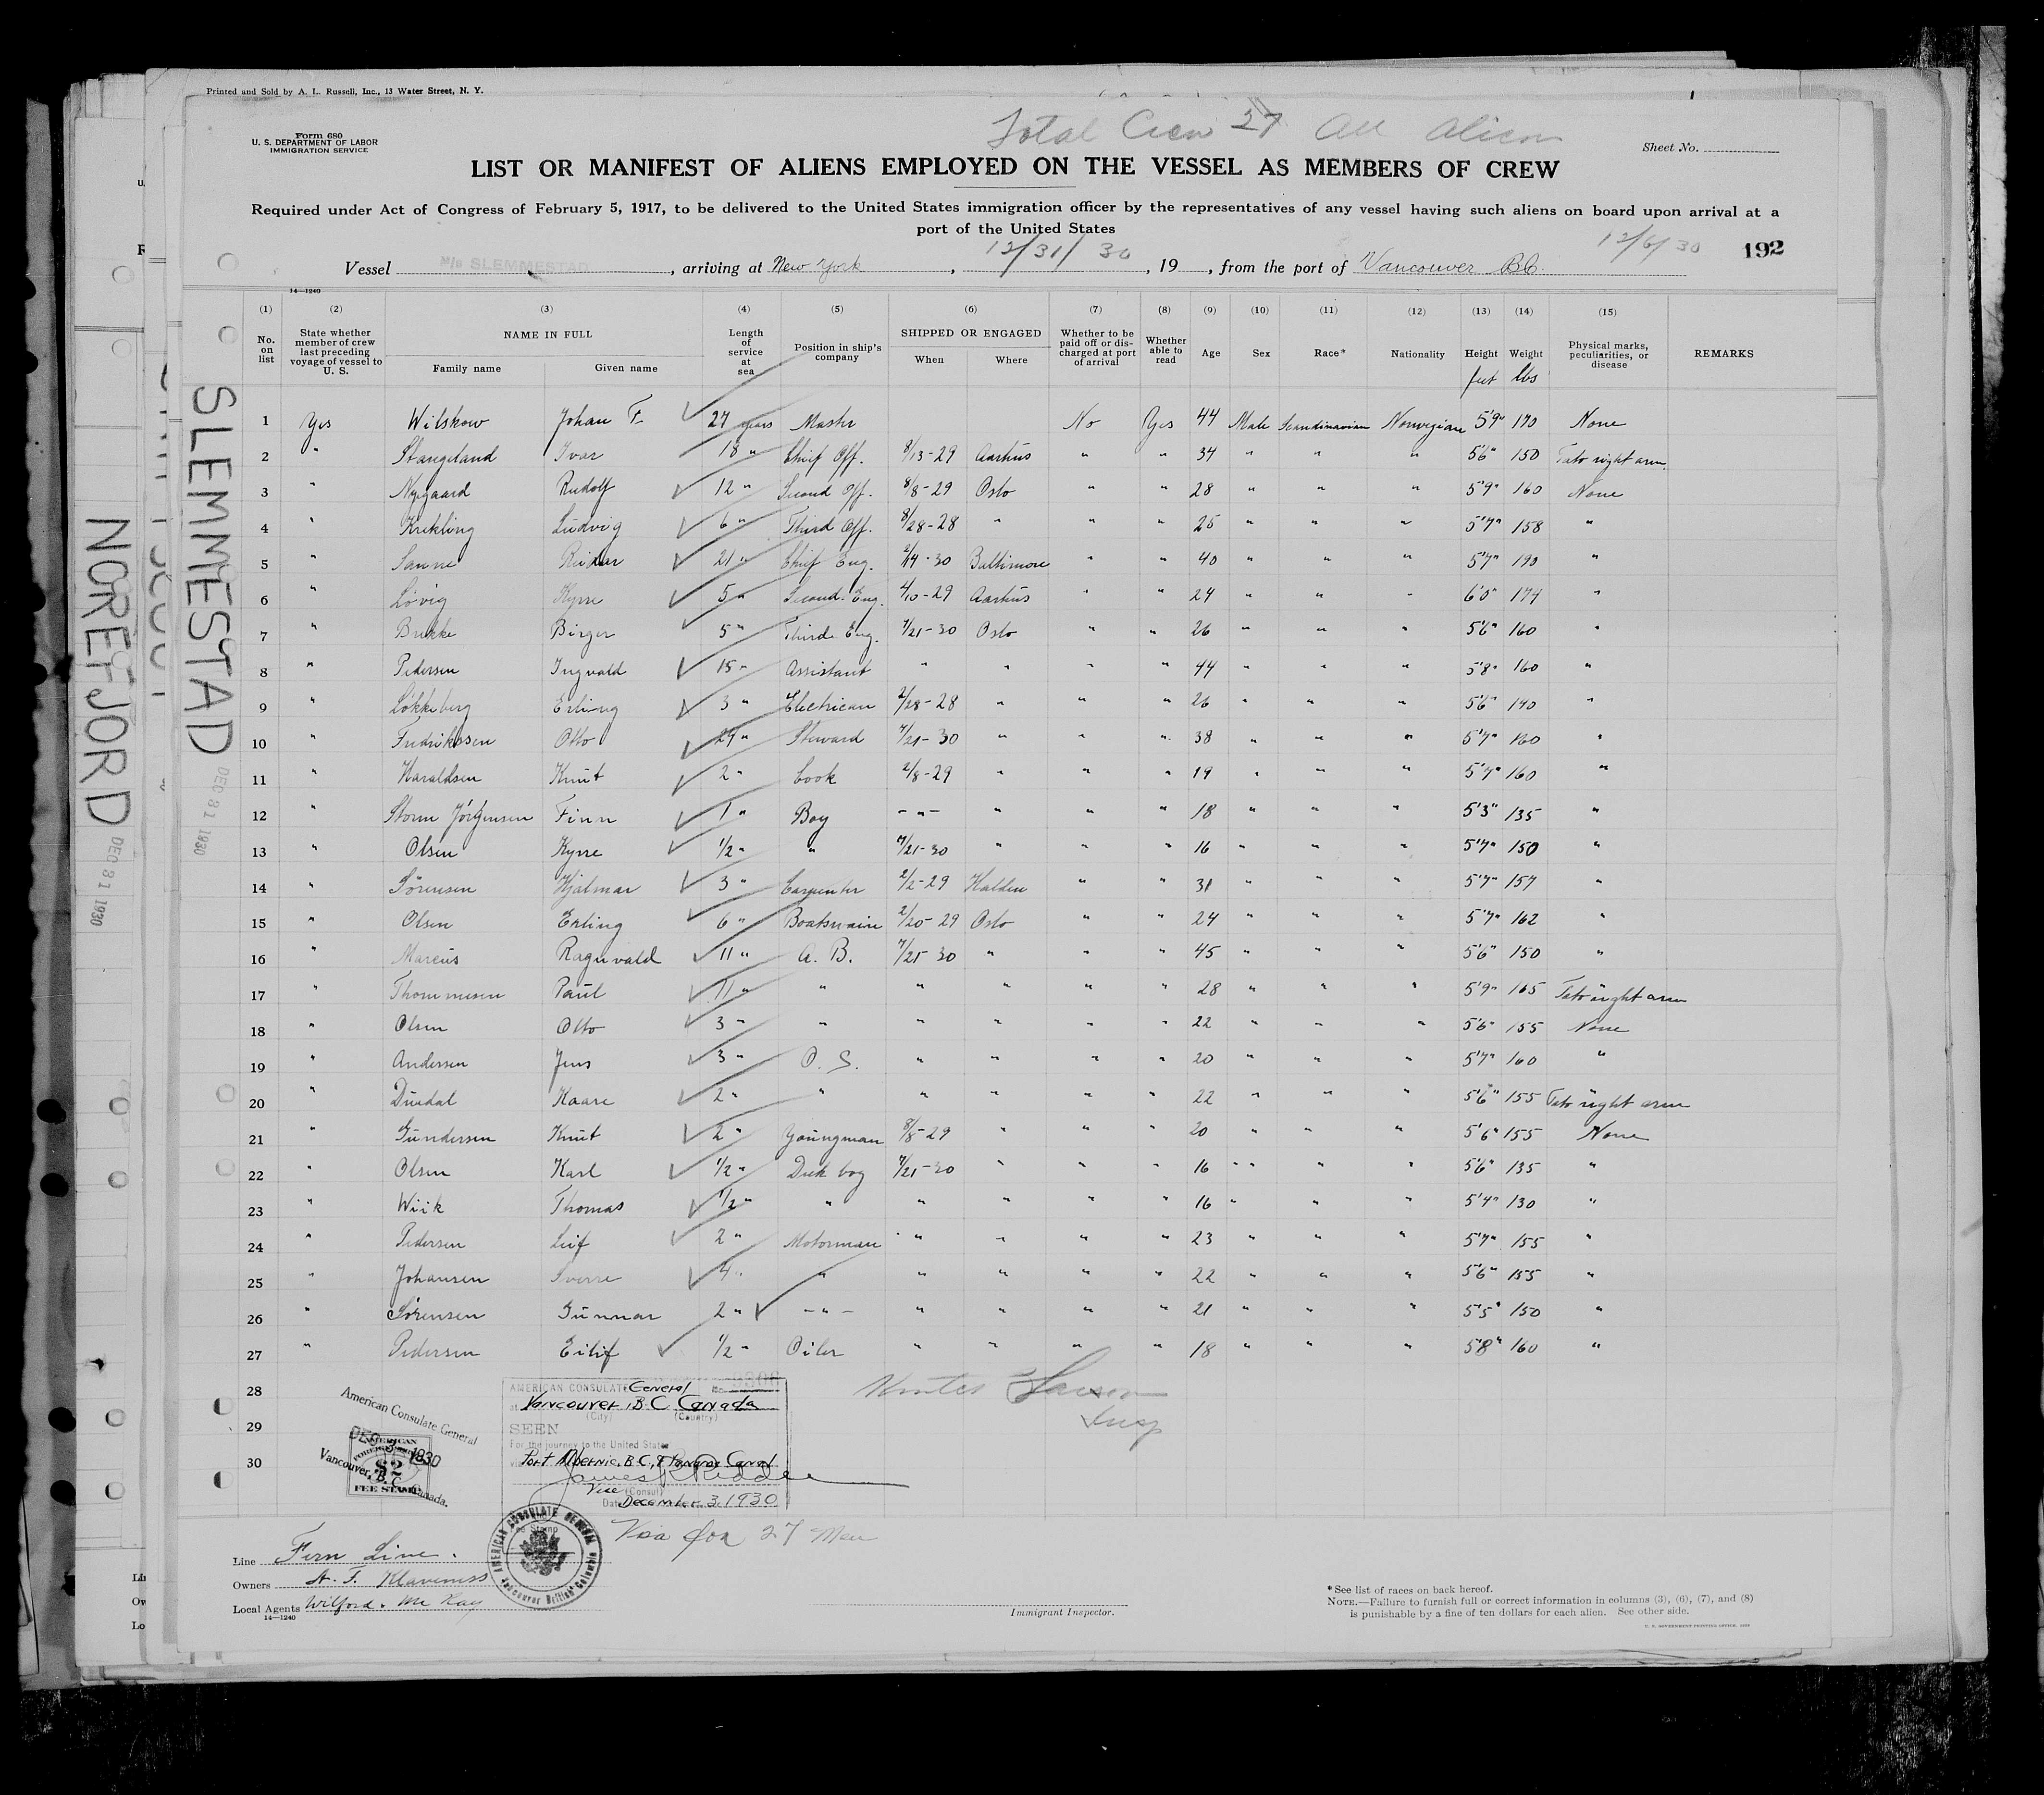 Printed and Sold by A. L. Russell, Inc., 13 Water Street, N. Y.
Total Crew 27 All Alien
Form 680
U. S. DEPARTMENT OF LABOR
IMMIGRATION SERVICE
Sheet No.
LIST OR MANIFEST OF ALIENS EMPLOYED ON THE VESSEL AS MEMBERS OF CREW
Required under Act of Congress of February 5, 1917, to be delivered to the United States immigration officer by the representatives of any vessel having such aliens on board upon arrival at a
port of the United States
12/6/30
192
Vessel M/S SLEMMESTAD, arriving at New York, 12/31/30, 19, from the port of Vancouver B.C.
14—1240
(1) (2) (3) (4) (5) (6) (7) (8) (9) (10) (11) (12) (13) (14) (15)
No. on list
State whether member of crew last preceding voyage of vessel to U. S.
NAME IN FULL
Family name Given name
Length of service at sea
Position in ship's company
SHIPPED OR ENGAGED
When Where
Whether to be paid off or discharged at port of arrival
Whether able to read
Age Sex Race* Nationality
Height feet
Weight lbs
Physical marks, peculiarities, or disease
REMARKS
1 Yes Wilskow Johan F. 27 years Master No Yes 44 Male Scandinavian Norwegian 5'9" 170 None
2 " Stangeland Ivar 18 " Chief Off. 8/13-29 Aarhus " " 34 " " " 5'6" 150 Tato right arm
3 " Nygaard Rudolf 12 " Second Off. 8/8-29 Oslo " " 28 " " " 5'9" 160 None
4 " Krekling Ludvig 6 " Third Off. 8/28-28 " " " 25 " " " 5'7" 158 "
5 " Sanne Reidar 21 " Chief Eng. 2/4-30 Baltimore " " 40 " " " 5'7" 190 "
6 " Lövig Kyrre 5 " Second Eng. 4/10-29 Aarhus " " 24 " " " 6'0" 174 "
7 " Brekke Birger 5 " Third Eng. 7/21-30 Oslo " " 26 " " " 5'6" 160 "
8 " Pedersen Ingvald 15 " Assistant " " " " 44 " " " 5'8" 160 "
9 " Lökkeberg Erling 3 " Electrican 2/28-28 " " " 26 " " " 5'6" 140 "
10 " Fredrikssen Otto 24 " Steward 7/21-30 " " " 38 " " " 5'7" 160 "
11 " Haraldsen Knut 2 " Cook 2/8-29 " " " 19 " " " 5'7" 160 "
12 " Storm Jörgensen Finn 1 " Boy -"- " " " 18 " " " 5'3" 135 "
13 " Olsen Kyrre 1/2 " " 7/21-30 " " " 16 " " " 5'7" 150 "
14 " Sörensen Hjalmar 3 " Carpenter 2/2-29 Halden " " 31 " " " 5'7" 157 "
15 " Olsen Erling 6 " Boatswain 2/20-29 Oslo " " 24 " " " 5'7" 162 "
16 " Marcus Ragnvald 11 " A. B. 7/21-30 " " " 45 " " " 5'6" 150 "
17 " Thommesen Paul 11 " " " " " " 28 " " " 5'9" 165 Tato right arm
18 " Olsen Otto 3 " " " " " " 22 " " " 5'6" 155 None
19 " Andersen Jens 3 " O. S. " " " " 20 " " " 5'7" 160 "
20 " Duedal Kaare 2 " " " " " " 22 " " " 5'6" 155 Tato right arm
21 " Gundersen Knut 2 " Youngman 8/8-29 " " " 20 " " " 5'6" 155 None
22 " Olsen Karl 1/2 " Deck boy 7/21-30 " " " 16 " " " 5'6" 135 "
23 " Wiik Thomas 1/2 " " " " " " 16 " " " 5'4" 130 "
24 " Pedersen Leif 2 " Motorman " " " " 23 " " " 5'7" 155 "
25 " Johansen Sverre 4 " " " " " " 22 " " " 5'6" 155 "
26 " Sörensen Gunnar 2 " -"- " " " " 21 " " " 5'5" 150 "
27 " Pedersen Eilif 1/2 " Oiler " " " " 18 " " " 5'8" 160 "
28
29
30
Insp
American Consulate General
DEC 3 1930
Vancouver, B. C., Canada.
AMERICAN
$2
FEE STAMP
AMERICAN CONSULATE General No.
at Vancouver, B.C. Canada
(City) (Country)
SEEN
For the journey to the United States
via Port Alberni, B.C., & Panama Canal
Vice (Consul)
Date December 3, 1930
AMERICAN CONSULATE GENERAL
Vancouver British Columbia
Visa for 27 Men
Line Fern Line.
Owners A. F. Klaveness
Local Agents Wilford & Mc Kay
14—1240
Immigrant Inspector.
* See list of races on back hereof.
NOTE.—Failure to furnish full or correct information in columns (3), (6), (7), and (8)
is punishable by a fine of ten dollars for each alien. See other side.
SLEMMESTAD
DEC 31 1930
NOREFJORD
DEC 31 1930